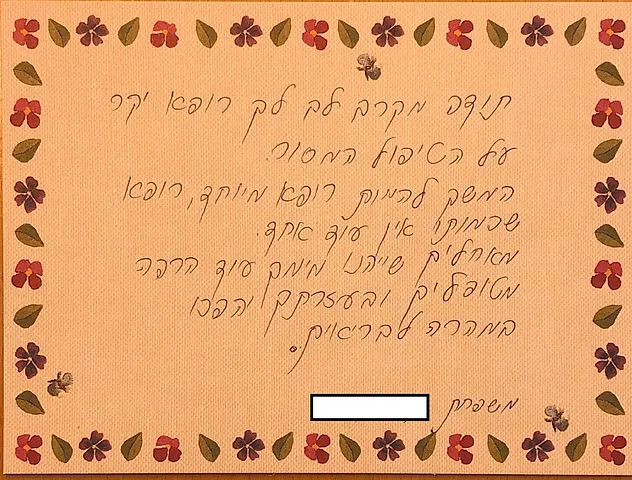 תודה מקרב לב לך רופא יקר
על הטיפול המסור.
המשך להיות רופא מיוחד, רופא
שכמותו אין עוד אחד.
מאחלים שייהנו מימך עוד הרבה
מטופלים ובעזרתך יהפכו
במהרה לבריאים.
משפחת